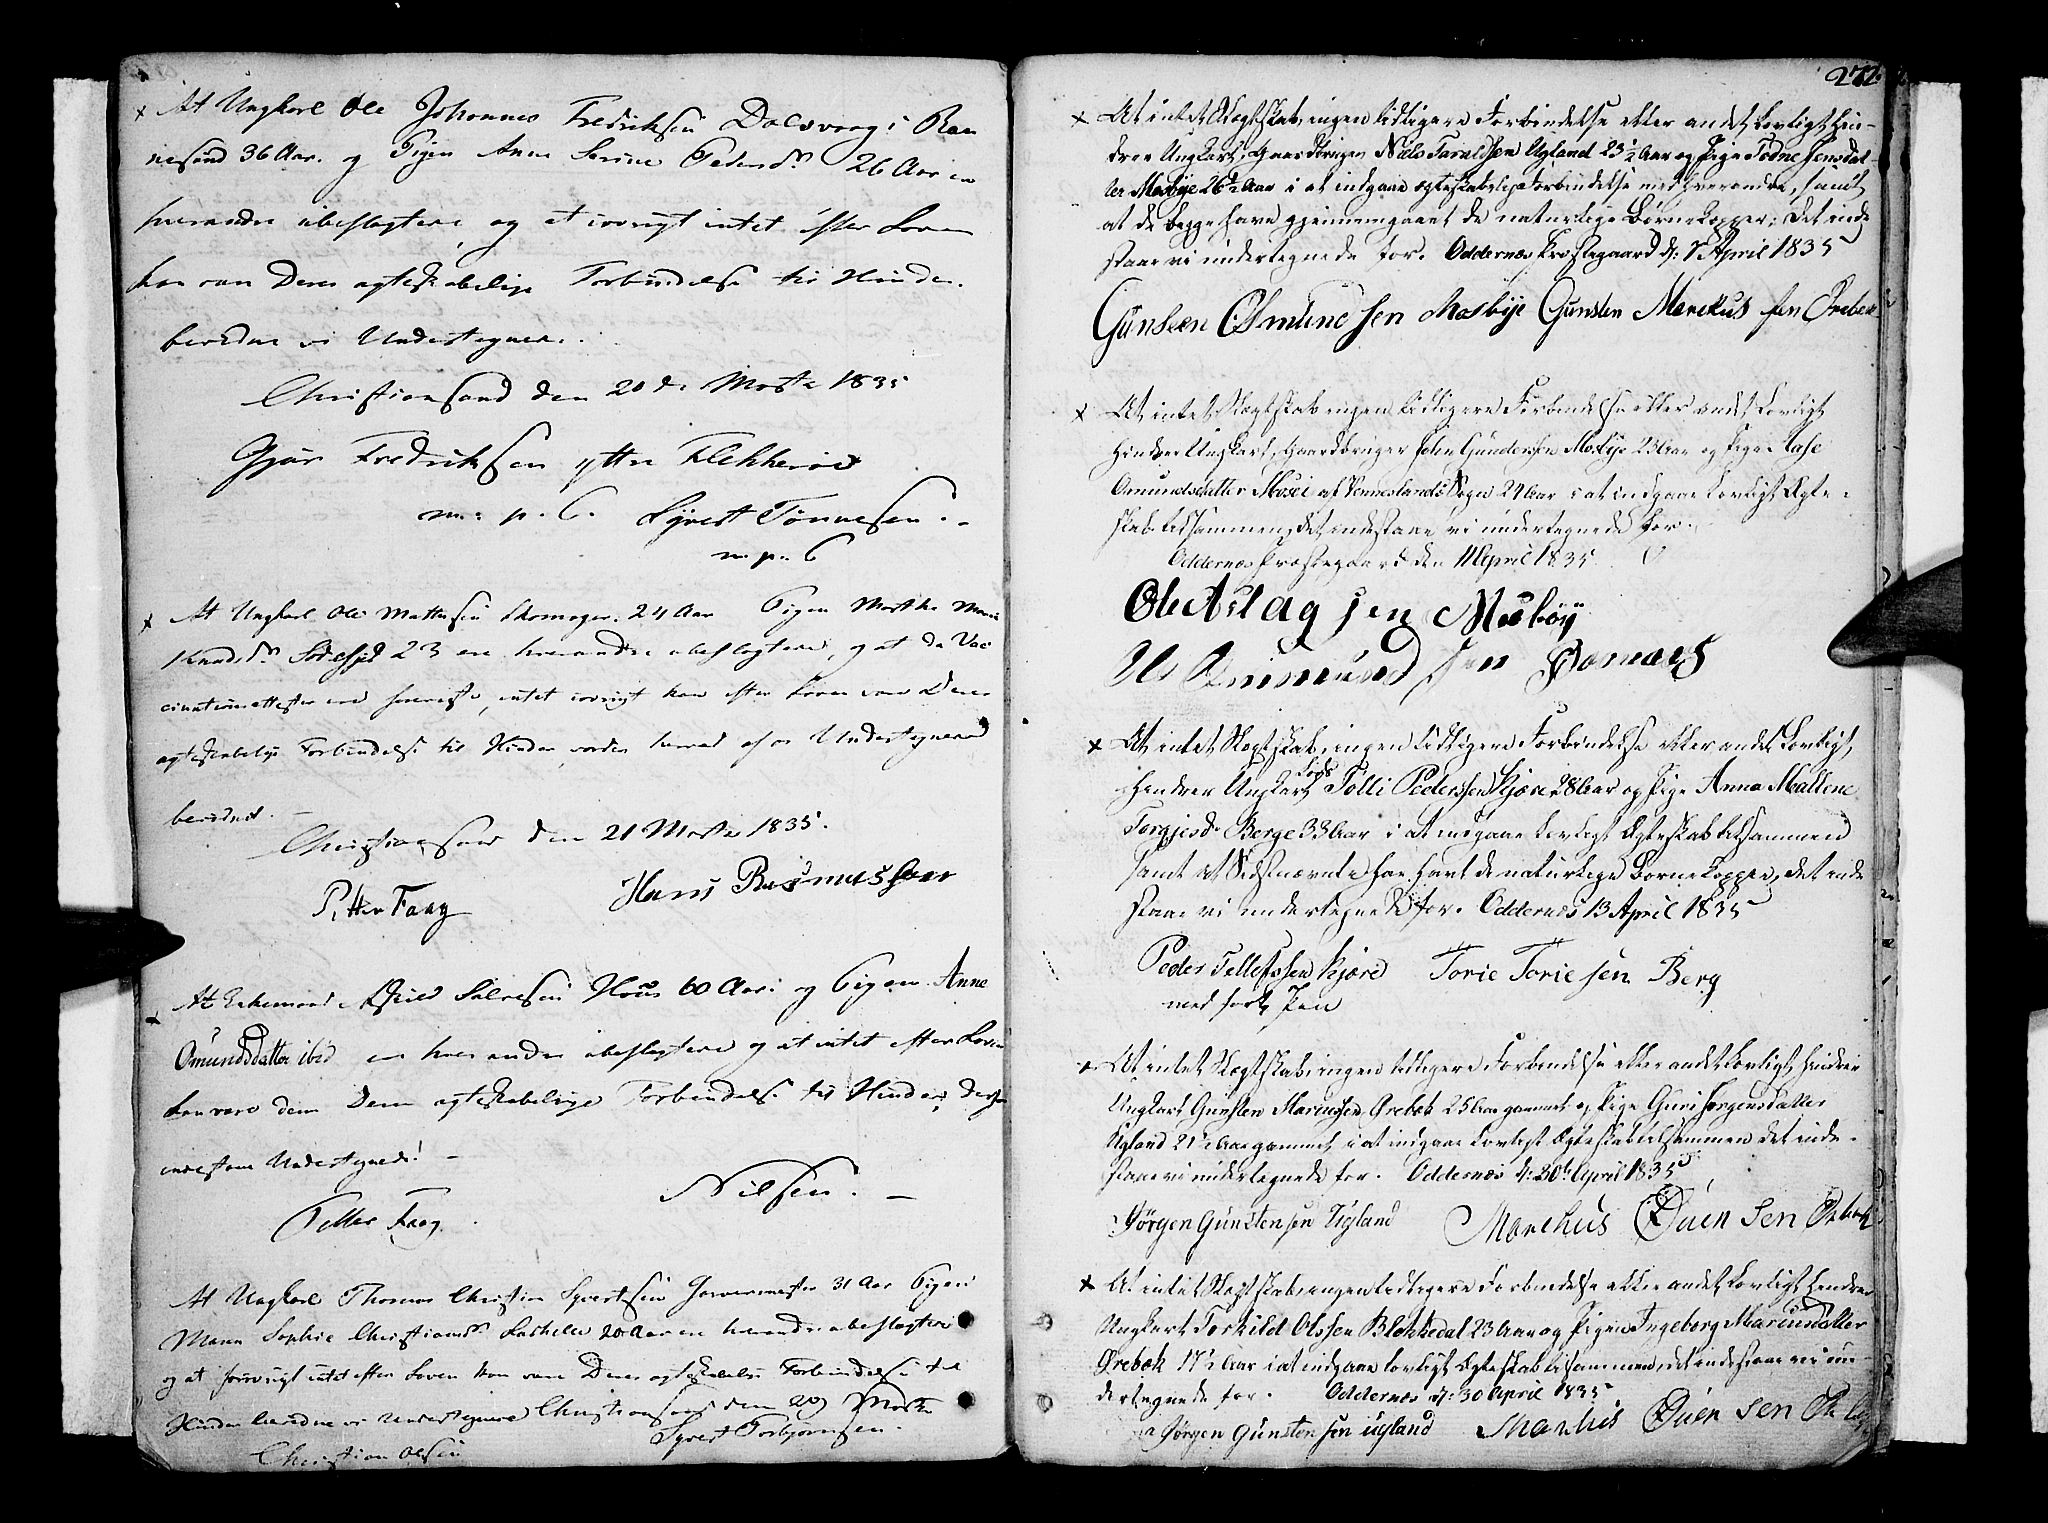 × At Ungkarl Ole Johannes Fredriksen Dalsvaag i Ran
nesund 36 Aar. og Pigen Anne Serine Pedersdr. 26 Aar ere
hverandre ubeslægtede og at iøvrigt intet efter Loven
kan være Deres ægteskabelige Forbindelse til Hinder.
bevidne vi Undertegnede.
Christiansand den 20de Marts 1835
Gjær Fredriksen yttre Flekkerøe
m: p. C. Syvert Tønnesen.
m. p. C
× At Ungkarl Ole Mathisen Skomager. 24 Aar Pigen Marthe Marie
Knudsdr. 23 ere hverandre ubeslægtede, og at da Vac
cinationsattester ere foreviste, intet iøvrigt kan efter Loven være Deres
ægteskabelige Forbindelse til Hinder, vorder herved af os Undertegnede
bevidnet. –
Christiansand den 21 Marts 1835.
Petter Faag Hans Rasmussen
At Enkemand Salvesen 60 Aar og Pigen Anne
Omundsdatter ibid ere hverandre ubeslægtede og at intet efter Loven
kan være dem Deres ægteskabelige Forbindelse til Hinder, derfor
indestaae Undertegnede! –
Petter Faag. Nilsen. –
At Ungkarl Thomas Christian Syvertsen Garvermester 31 Aar Pigen
Maren Sophie Christiansdr. 20 Aar ere hverandre ubeslægtede
og at forøvrigt intet efter Loven kan være Deres ægteskabelige Forbindelse til
Hinder bevidne vi Undertegnede Christiansand den 29 Marts
Syvert Torbjørnsen.
Christian Olsen
272.
× At intet Slægtskab, ingen tidligere Forbindelse eller andet lovligt hin-
drer Ungkarl, Gaardbruger Niels Taraldsen Ugland 23½ Aar og Pige Todne Jensdat
ter Mosbye 26½ Aar i at indgaae ægteskabelig Forbindelse med hverandre, samt
at de begge have gjennemgaaet de naturlige Børnekopper; det inde
staae vi undertegnede for. Oddernæs Præstegaard d: 7 April 1835
Gunsten Mosbye Gunsten Marckus sen
× At intet Slægtskab ingen tidligere Forbindelse eller andet lovligt
hindrer Ungkarl, Gaardbruger John Gundersen Mosbye 23 Aar og Pige Aase
Omundsdatter Mosei af Venneslands Sogn 24 Aar i at indgaae lovligt Ægte-
skab tilsammen, det indestaae vi undertegnede for.
Oddernæs Præstegaard den 11 April 1835
Ole Aslag sen Mosbøy
× At intet Slægtskab, ingen tidligere Forbindelse eller andet lovligt,
hindrer Ungkarl Lods Tølli Pederssen Kjære 28 Aar og Pige Anna Mallene
Torgjesdr Berge 33 Aar i at indgaae lovligt Ægteskab tilsammen
samt at Sidstnævnte har havt de naturlige Børnekopper, det inde
staae vi undertegnede for. Oddernæs 13 April 1835
Peder Tellefssen Kjære Torie Toriesen Berg
med ført Pen
× At intet Slægtskab, ingen tidligere Forbindelse eller andet lovligt hindrer
Ungkarl Gunsten Marcussen Ørebæk 25 Aar gammel og Pige Guri Jørgensdatter
Ugland 21½ Aar gammel, i at indgaae lovligt Ægteskab tilsammen det inde-
staae vi undertegnede for. Oddernæs d: 20de April 1835
Jørgen Gunsten sen Ugland Marchus sen
× At intet Slægtskab, ingen tidligere Forbindelse eller andet lovligt hindrer
Ungkarl Torkild Olssen Blekkedal 23 Aar og Pigen Ingeborg Marcusdatter
Ørebæk 17½ Aar i at indgaae lovligt Ægteskab tilsammen, det indestaae vi un-
dertegnede for. Oddernæs d: 30 April 1835
Jørgen Gunsten sen Ugland Marchus sen